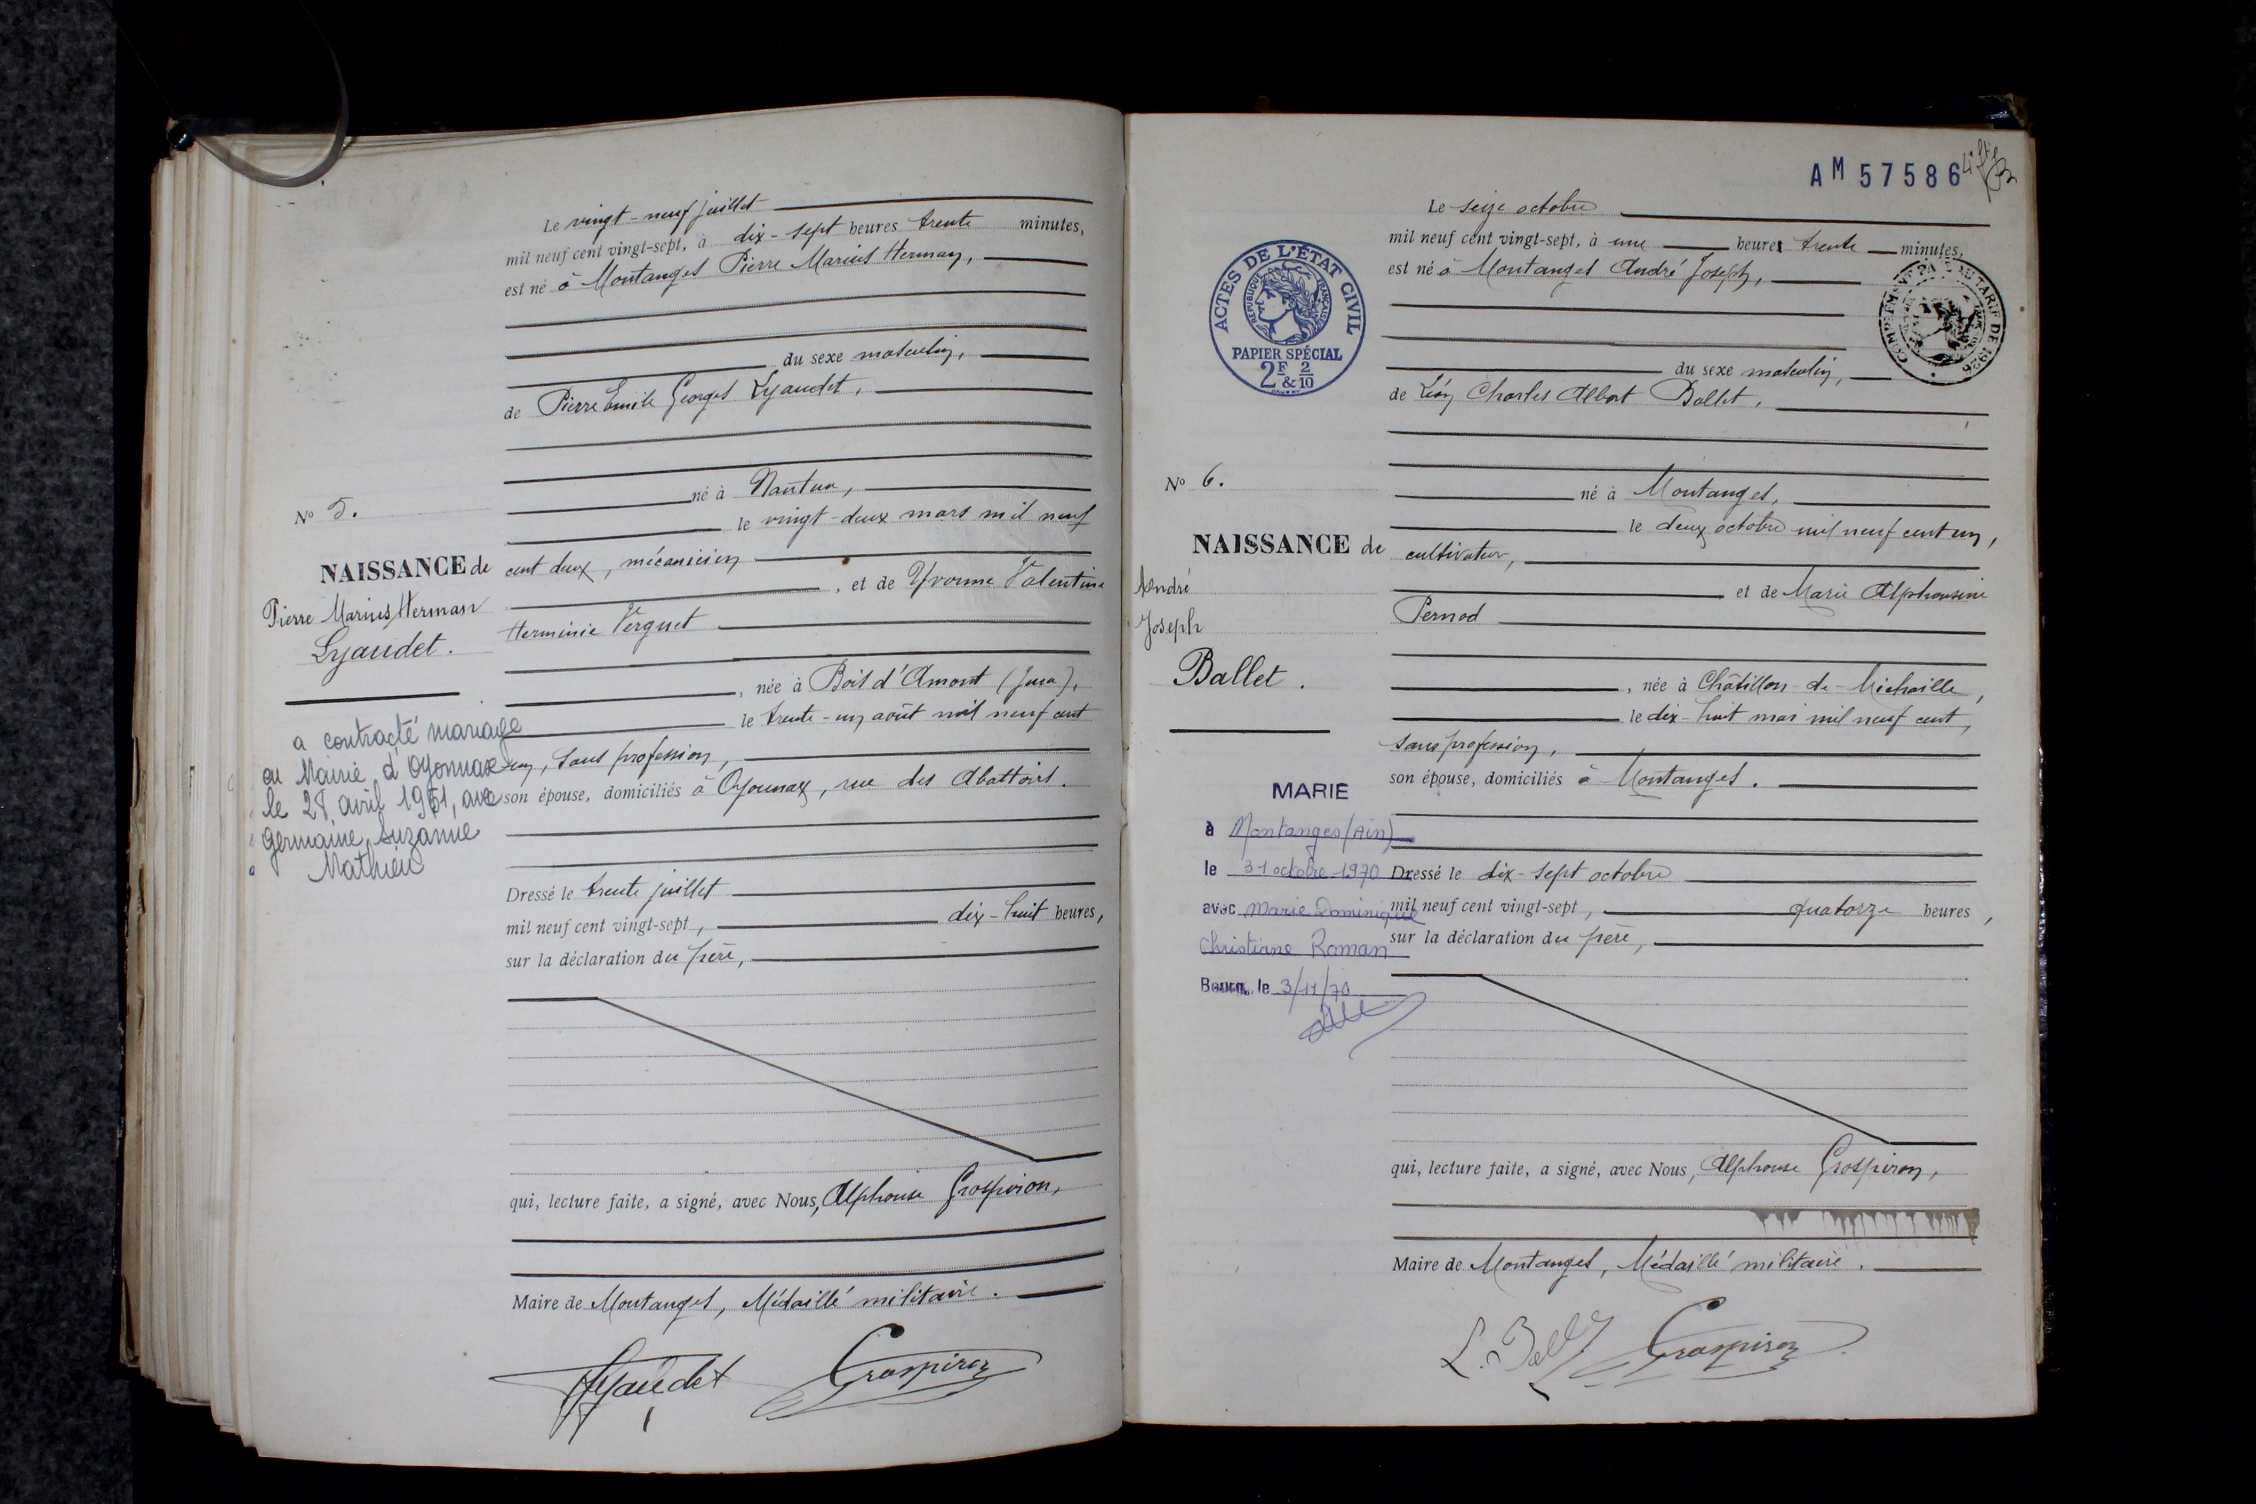 Le vingt-neuf juillet
mil neuf cent vingt-sept, à dix-sept heures trente minutes,
est né à Montanges Pierre Marius Herman,
du sexe masculin,
de Pierre Emile Georges Lyaudet,
né à Nantua,
le vingt-deux mars mil neuf
cent deux, mécanicien
, et de Yvonne Valentine
Herminie Verguet
, née à Bois d'Amont (Jura),
le trente-un août mil neuf cent
un, sans profession,
son épouse, domiciliés à Oyonnax, rue des Abattoirs.
Dressé le trente juillet
mil neuf cent vingt-sept, dix-huit heures,
sur la déclaration du père,
qui, lecture faite, a signé, avec Nous, Alphonse Grospiron,
Maire de Montanges, Médaillé militaire.
Lyaudet Grospiron
No 5.
NAISSANCE de
Pierre Marius Herman
Lyaudet.
a contracté mariage
en Mairie d'Oyonnax
le 28 avril 1951, avec
Germaine Suzanne
Mathieu
AM 57586
Le seize octobre
mil neuf cent vingt-sept, à une heure trente minutes,
est né à Montanges André Joseph,
du sexe masculin,
de Léon Charles Albert Ballet,
né à Montanges,
le deux octobre mil neuf cent un,
cultivateur,
et de Marie Alphonsine
Pernod
, née à Châtillon-de-Michaille,
le dix-huit mai mil neuf cent,
sans profession,
son épouse, domiciliés à Montanges.
Dressé le dix-sept octobre
mil neuf cent vingt-sept, quatorze heures,
sur la déclaration du père,
qui, lecture faite, a signé, avec Nous, Alphonse Grospiron,
Maire de Montanges, Médaillé militaire.
L. Ballet Grospiron
ACTES DE L'ÉTAT CIVIL
RÉPUBLIQUE FRANÇAISE
PAPIER SPÉCIAL
2F & 2/10
TARIF DE 1926
No 6.
NAISSANCE de
André
Joseph
Ballet.
MARIE
à Montanges (Ain)
le 31 octobre 1970
avec Marie Dominique
Christiane Roman
Bourg, le 3/11/70